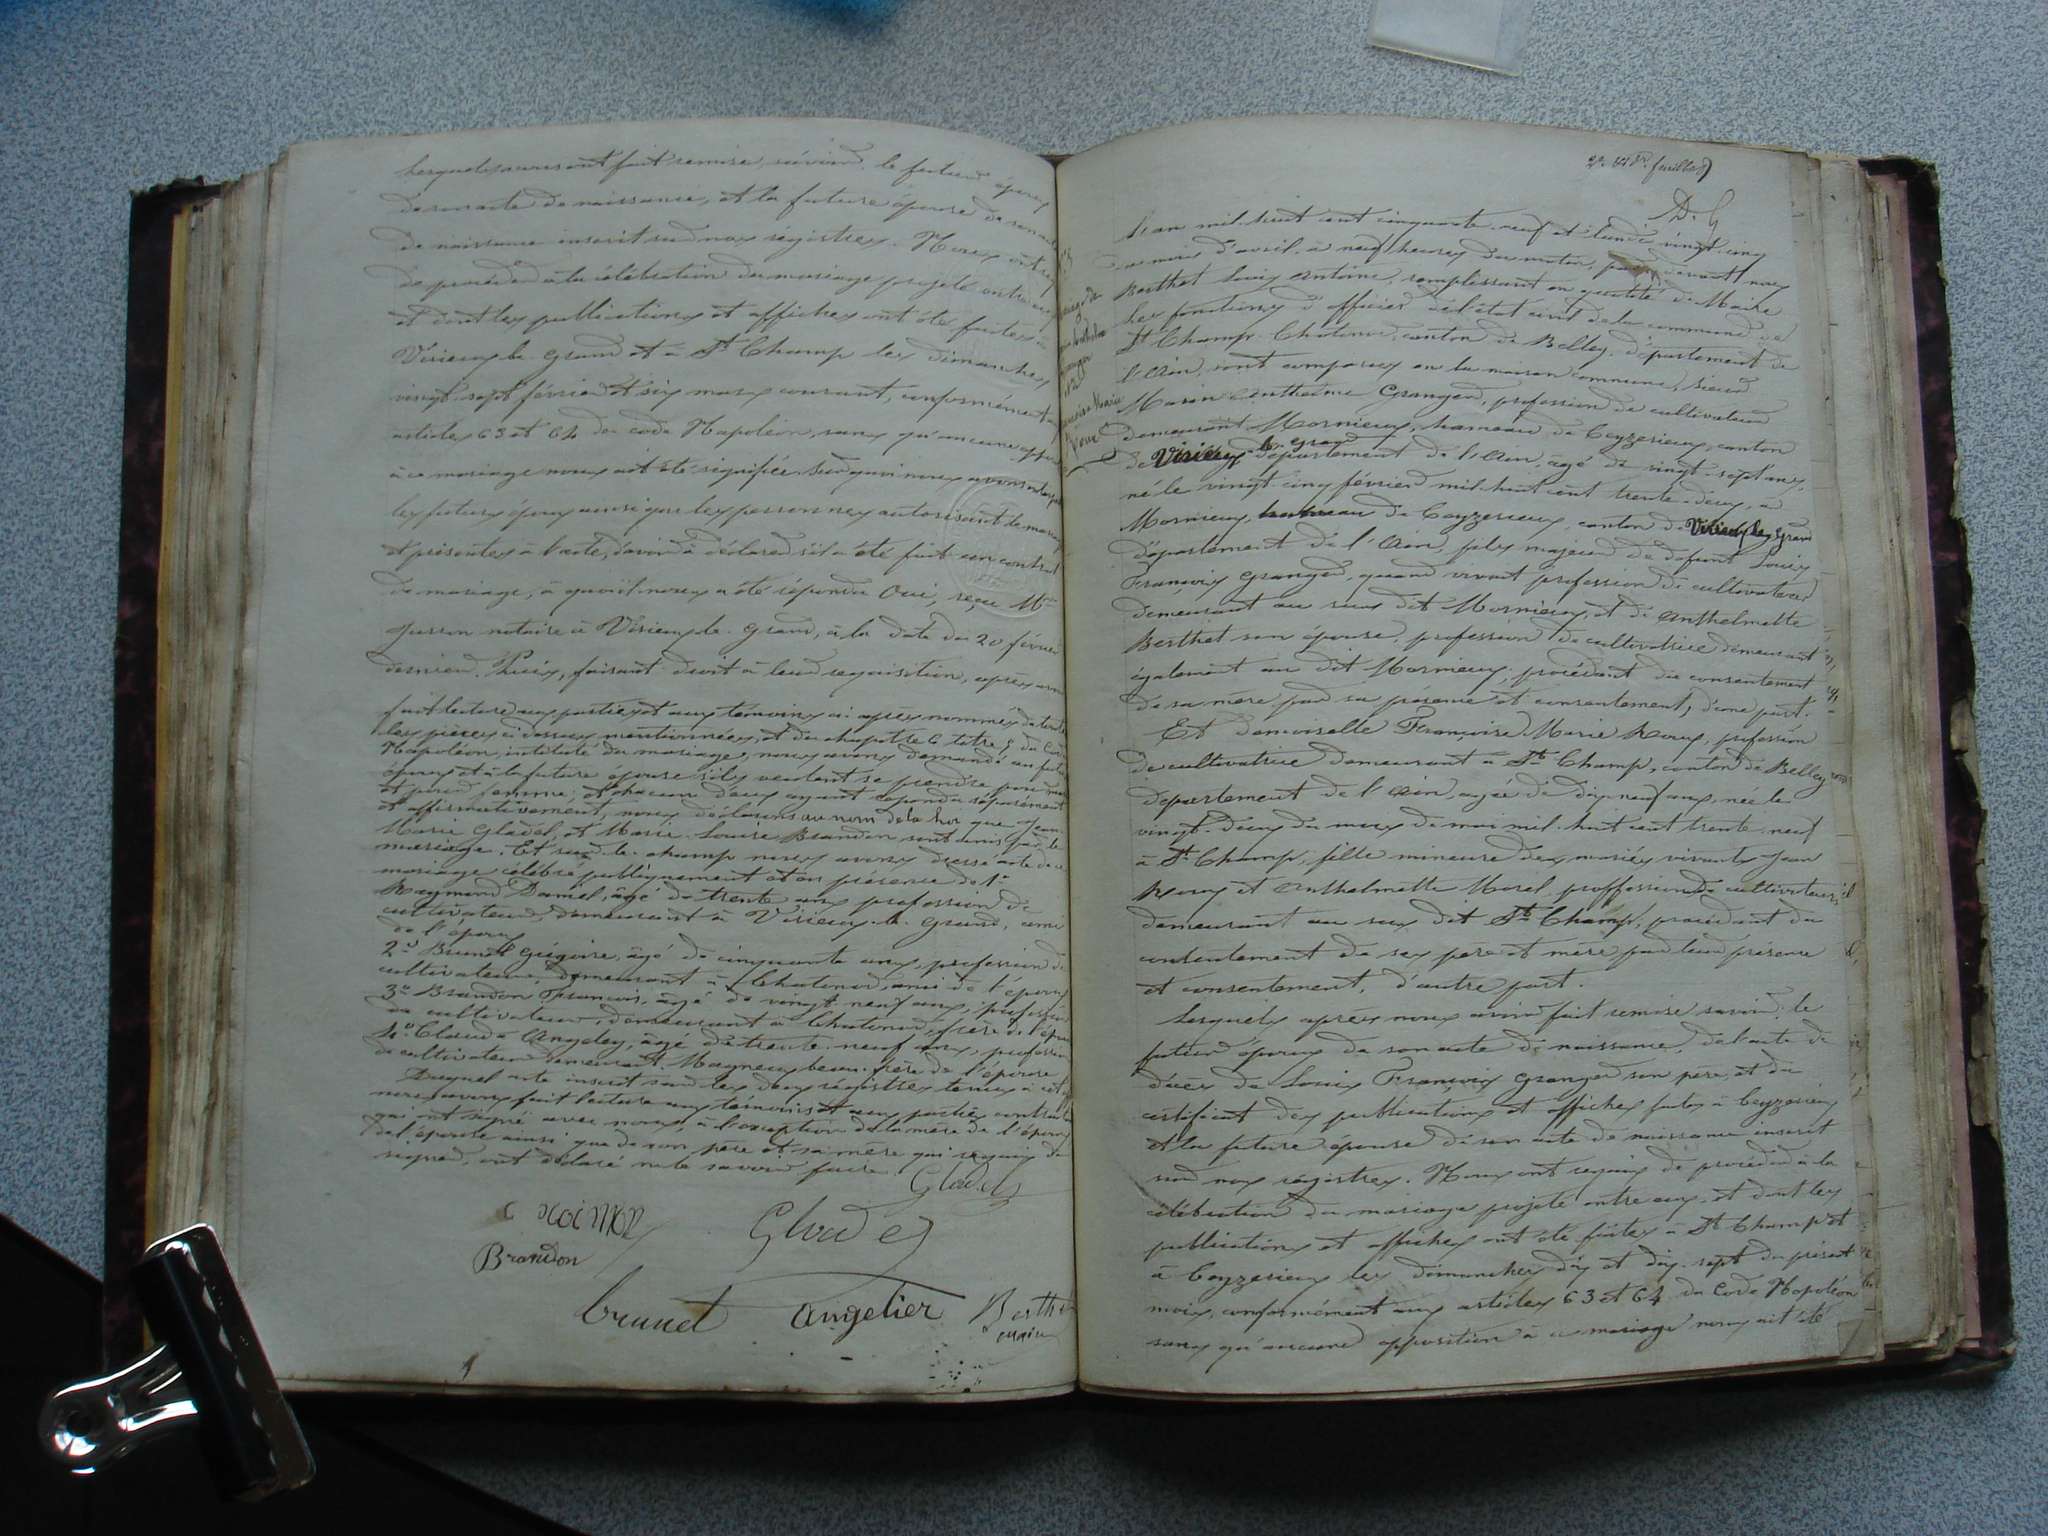 lesquels nous ont fait remise, savoir: le futur époux
de son acte de naissance, et la future épouse de son acte
de naissance inscrit sur nos registres. Nous ont requis
de procéder à la célébration du mariage projeté entre eux
et dont les publications et affiches ont été faites à
Virieu le grand et à St Champ les dimanches
vingt-sept février et six mars courant, conformément aux
articles 63 et 64 du code Napoléon, sans qu'aucune oppo
à ce mariage nous ait été signifiée. Sur quoi nous avons interpellé
les futurs époux ainsi que les personnes autorisant le mariage
et présentes à l'acte, d'avoir à déclarer s'il a été fait un contrat
de mariage, à quoi il nous a été répondu Oui, reçu Me
Jusson notaire à Virieu le grand, à la date du 20 février
dernier. Puis, faisant droit à leur requisition, après avoir
fait lecture aux parties et aux témoins ci-après nommés de toutes
les pièces ci-dessus mentionnées, et du chapitre 6 titre 5 du Code
Napoléon, intitulé du mariage, nous avons demandé au futur
époux et à la future épouse s'ils veulent se prendre pour mari
et pour femme; et chacun d'eux ayant répondu séparément
et affirmativement, nous déclarons au nom de la loi que Jean
Marie Gladel, et Marie Louise Brandon sont unis par le
mariage. Et sur le champ nous avons dressé acte de ce
mariage célébré publiquement et en présence de 1o
Raymond Daniel, âgé de trente ans profession de
cultivateur, demeurant à Virieu le Grand, ami
de l'époux
2o Brunet Grégoire, âgé de cinquante ans, profession de
cultivateur, demeurant à Chatonod, ami de l'époux
3o Brandon François, âgé de vingt neuf ans, profession
de cultivateur, demeurant à Chatonod, frère de l'épouse
4o Claude Angeley, âgé de trente-neuf ans, profession
de cultivateur demeurant Magneux beau-frère de l'épouse
Duquel acte inscrit sur les deux registres tenus à cet effet
nous avons fait lecture aux témoins et aux parties contractantes
qui ont signé avec nous, à l'exception de la mère de l'époux
de l'épouse ainsi que de son père et sa mère qui requis de
signer, ont déclaré ne le savoir faire.
Gladel
Brandon
brunet angelier Berthet
maire
2e et Dr. feuillet
D. G
L'an mil huit cent cinquante-neuf et lundi vingt-cinq
du mois d'avril à neuf heures du matin, pardevant nous
Berthet Louis Antoine, remplissant en qualité de Maire
les fonctions d'officier de l'état civil de la commune de
St Champ-Chatonod, canton de Belley, département de
l'Ain, sont comparus en la maison commune, sieur
Marin Anthelme Granger, profession de cultivateur
demeurant Mornieux, hameau de Ceyzerieux, canton
de Virieux le grand département de l'Ain, âgé de vingt-sept ans,
né le vingt-cinq février mil huit cent trente-deux, à
Mornieux, hameau de Ceyzerieux, canton de Virieux le Grand
département de l'Ain, fils majeur de défunt Louis
François Granger, quand vivant profession de cultivateur
demeurant au sus dit Mornieux, et de Anthelmette
Berthet son épouse, profession de cultivatrice demeurant
également au dit Mornieux, procédant du consentement
de sa mère par sa présence et consentement, d'une part.
Et demoiselle Françoise Marie Roux, profession
de cultivatrice demeurant à St Champ, canton de Belley
département de l'Ain, âgée de dix neuf ans, née le
vingt-deux du mois de mai mil huit cent trente-neuf
à St Champ, fille mineure des mariés vivants Jean
Roux et Anthelmette Morel, proffession de cultivateurs
demeurant au sus dit St Champ, procédant du
contentement de ses père et mère par leur présence
et consentement, d'autre part.
Lesquels après nous avoir fait remise savoir: le
futur époux de son acte de naissance, de l'acte de
décès de Louis François Granger son père, et du
certificat des publications et affiches faites à Ceyzerieu
et la future épouse de son acte de naissance inscrit
sur nos registres. Nous ont requis de procéder à la
célébration du mariage projeté entre eux, et dont les
publications et affiches ont été faites à St Champ et
à Ceyzerieux les dimanches dix et dix-sept du présent
mois, conformément aux articles 63 et 64 du Code Napoléon
sans qu'aucune opposition à ce mariage nous ait été